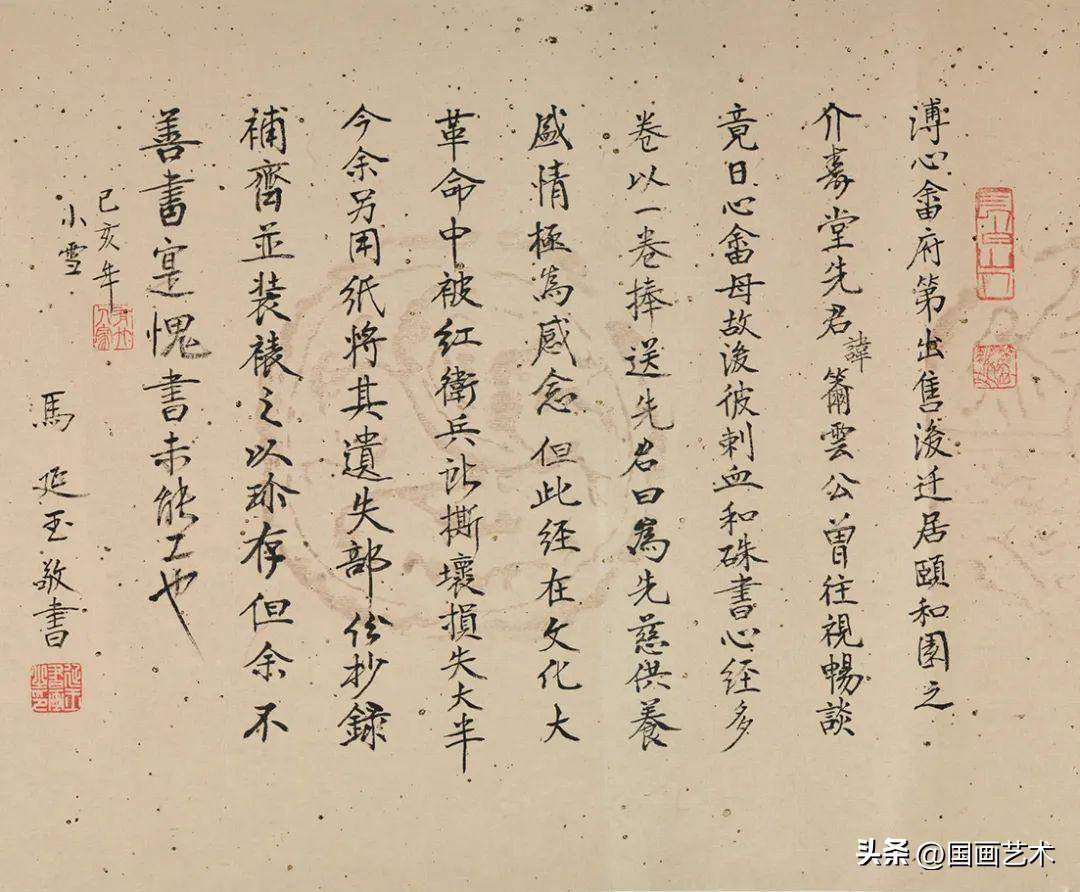 溥心畬府第出售後迁居頤和園之
介壽堂先君諱簫雲公曾往視暢談
竟日心畬母故後彼刺血和硃書心经多
卷以一卷捧送先君曰為先慈供養
盛情極為感念但此经在文化大
革命中被红衛兵訨撕壞損失大半
今余另用纸將其遺失部份抄録
補齊並装裱之以珎存但余不
善書寔愧書未能工也
己亥年
小雪
馬延玉敬書
头条 @国画艺术